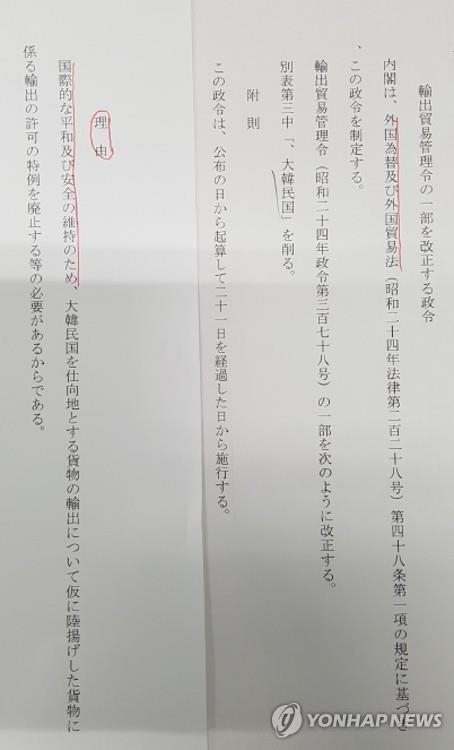 輸出貿易管理令の一部を改正する政令
内閣は、外国為替及び外国貿易法（昭和二十四年法律第二百二十八号）第四十八条第一項の規定に基づき
、この政令を制定する。
輸出貿易管理令（昭和二十四年政令第三百七十八号）の一部を次のように改正する。
別表第三中「、大韓民国」を削る。
附　則
この政令は、公布の日から起算して二十一日を経過した日から施行する。
理　由
国際的な平和及び安全の維持のため、大韓民国を仕向地とする貨物の輸出について仮に陸揚げした貨物に
係る輸出の許可の特例を廃止する等の必要があるからである。
YONHAP NEWS